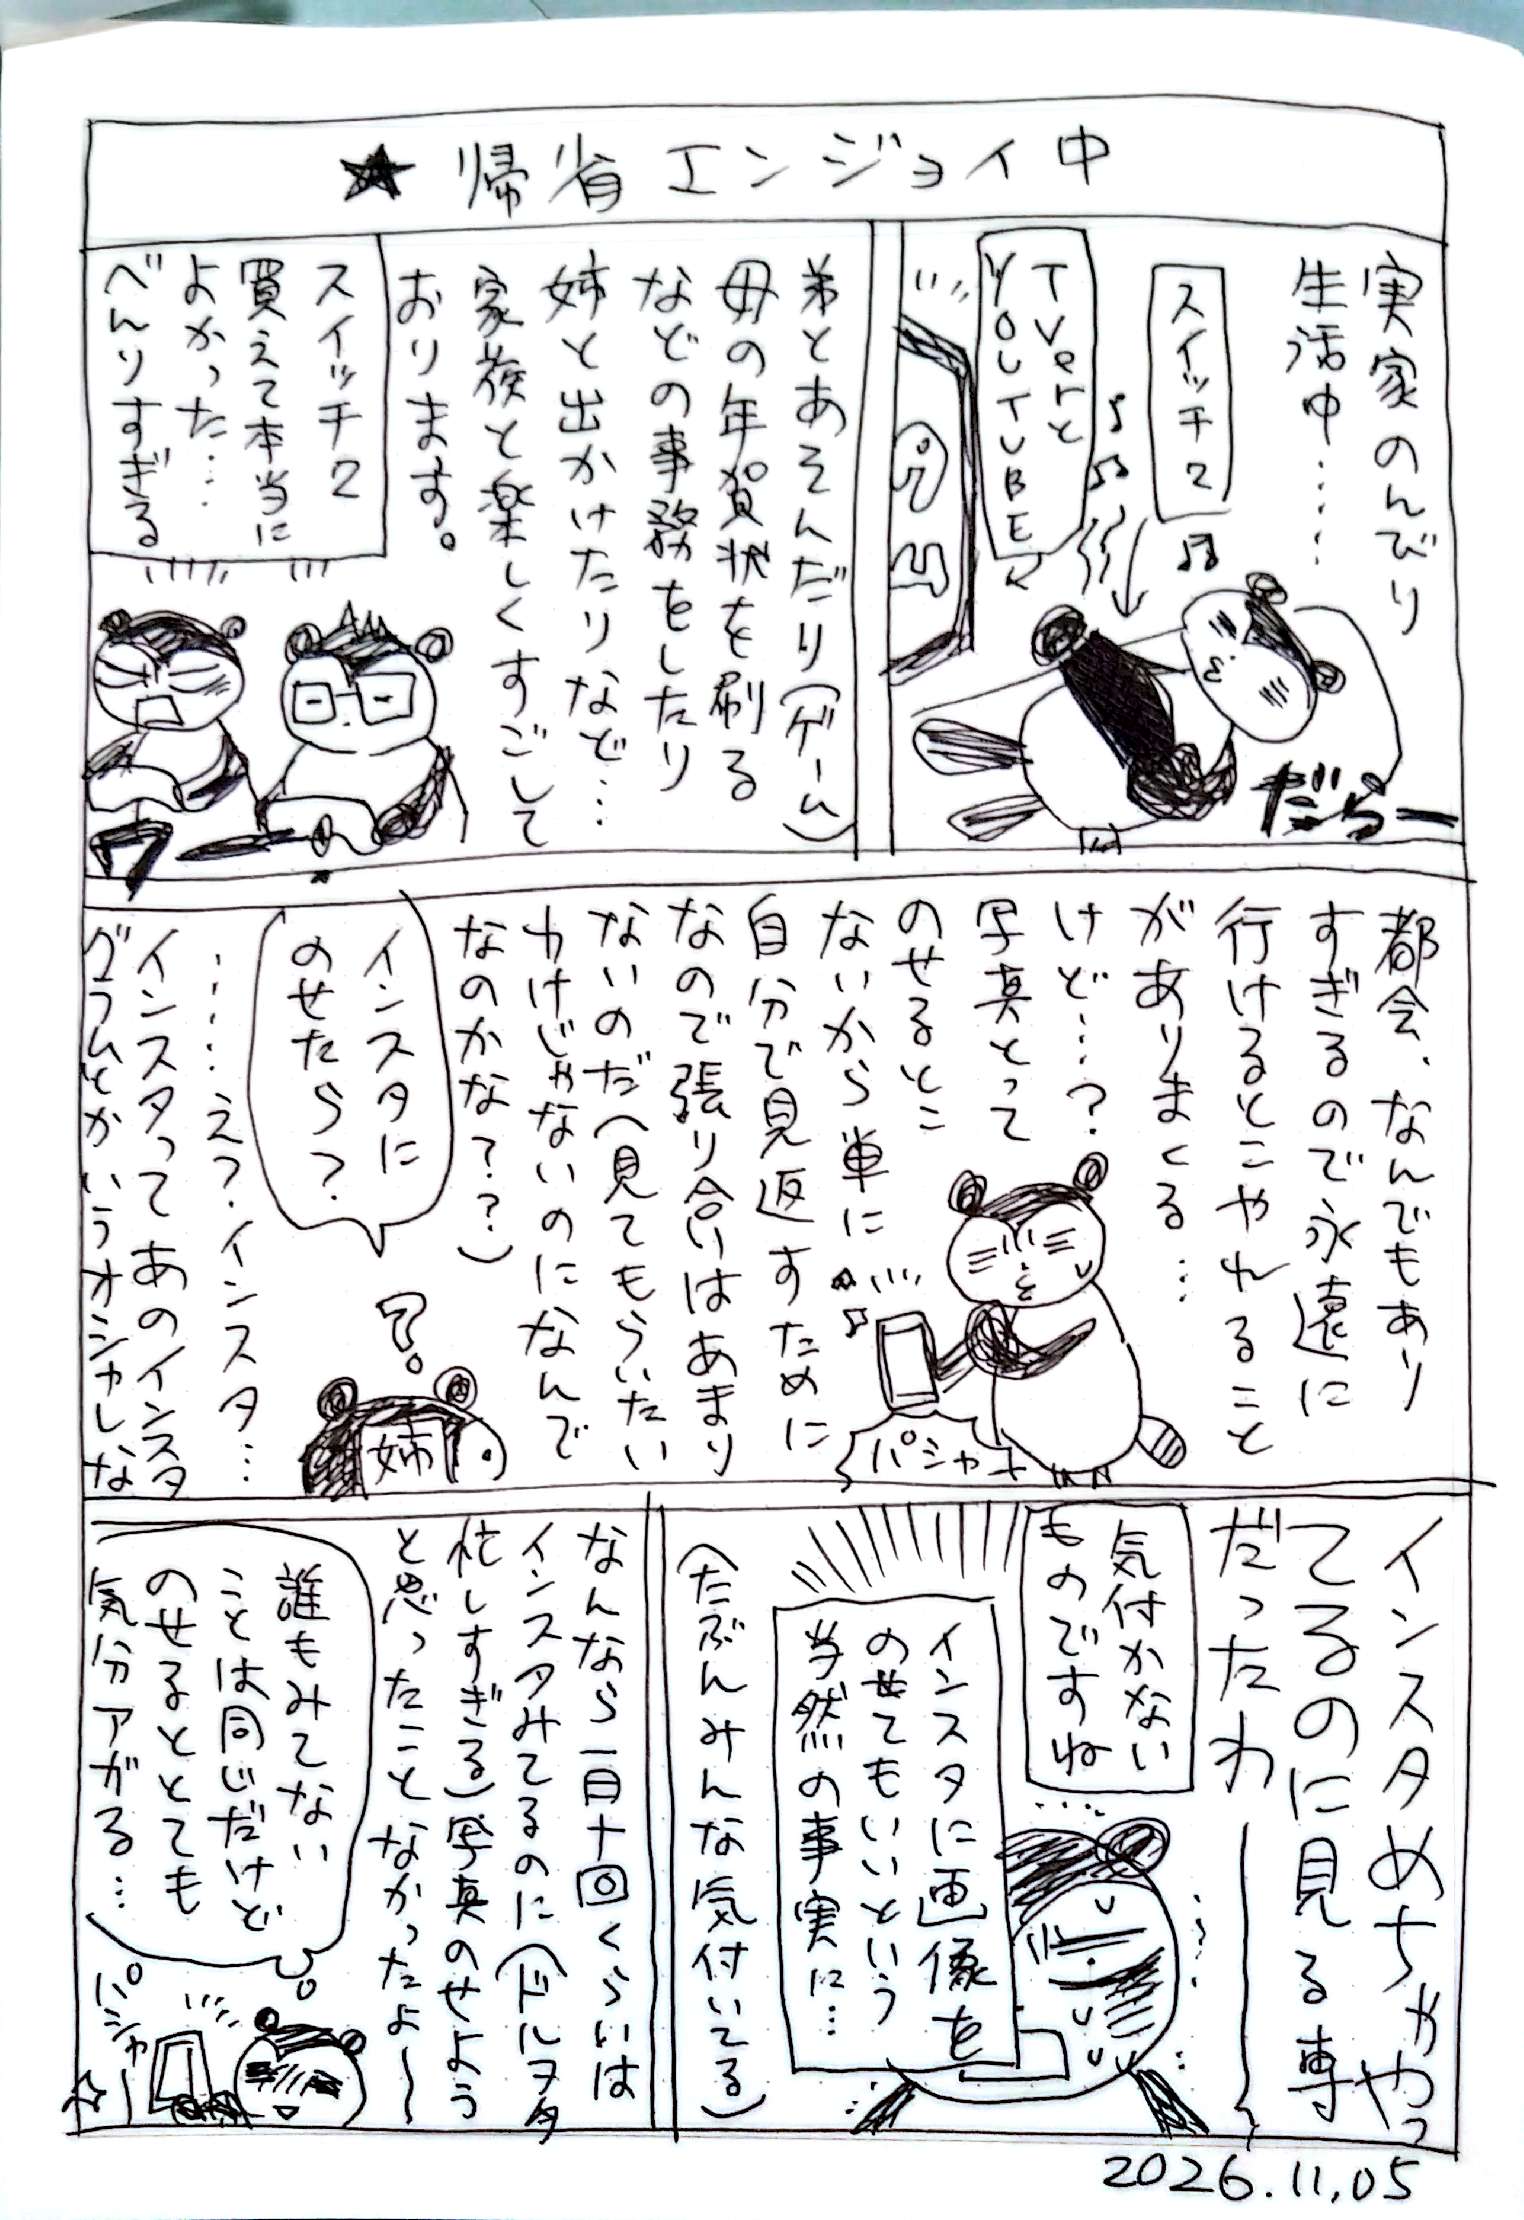 ★帰省エンジョイ中
実家のんびり
生活中……
スイッチ2
TVerと
YOUTUBE
だらー
弟とあそんだり(ゲーム)
母の年賀状を刷る
などの事務をしたり
姉と出かけたりなど…
家族と楽しくすごして
おります。
スイッチ2
買えて本当に
よかった…
べんりすぎる
ワー
都会、なんでもあり
すぎるので永遠に
行けるとこやれること
がありまくる…
けど…?
写真とって
のせるとこ
ないから単に
自分で見返すために
なので張り合いはあまり
ないのだ(見てもらいたい
わけじゃないのになんで
なのかな??)
パシャー
インスタに
のせたら?
?
姉
……え?インスタ…
インスタってあのインスタ
グラムとかいうオシャレな
インスタめちゃやっ
てるのに見る専
だったわ
気付かない
ものですね
インスタに画像を
のせてもいいという
当然の事実に…
(たぶんみんな気付いてる)
なんなら一日十回くらいは
インスタみてるのに(ドルヲタ
忙しすぎる)写真のせよう
と思ったことなかったよ〜
誰もみてない
ことは同じだけど
のせるととても
気分アガる…
パシャー
2026.11.05